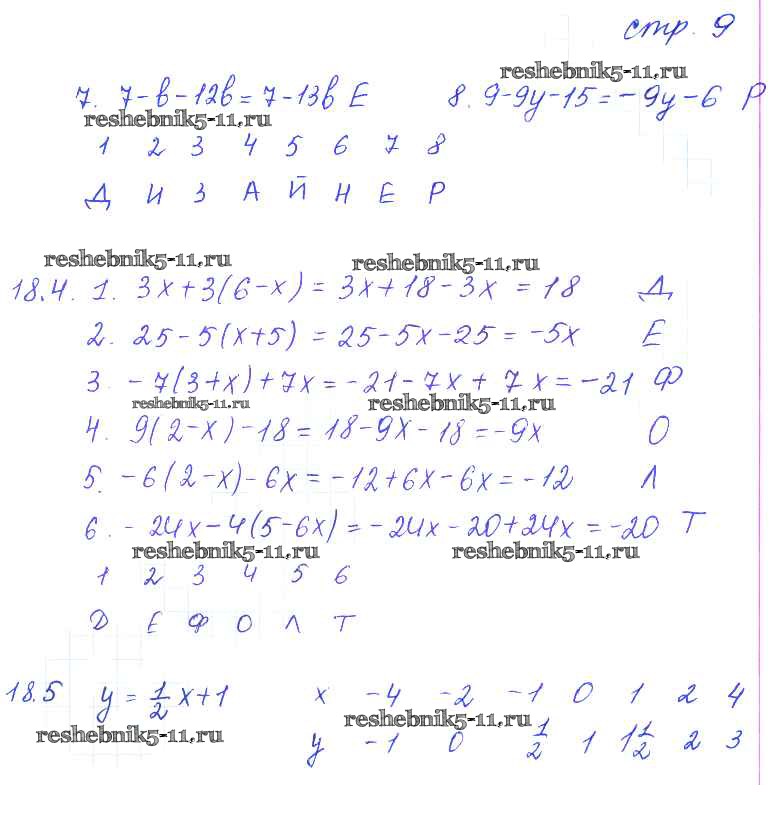 стр. 9
reshebnik5-11.ru
7. 7-в-12в=7-13в Е 8. 9-9y-15=-9y-6 Р
reshebnik5-11.ru
1 2 3 4 5 6 7 8
Д И З А Й Н Е Р
reshebnik5-11.ru reshebnik5-11.ru
18.4. 1. 3x+3(6-x)=3x+18-3x=18 Д
2. 25-5(x+5)=25-5x-25=-5x Е
3. -7(3+x)+7x=-21-7x+7x=-21 Ф
reshebnik5-11.ru reshebnik5-11.ru
4. 9(2-x)-18=18-9x-18=-9x О
5. -6(2-x)-6x=-12+6x-6x=-12 Л
6. -24x-4(5-6x)=-24x-20+24x=-20 Т
reshebnik5-11.ru reshebnik5-11.ru
1 2 3 4 5 6
Д Е Ф О Л Т
18.5 y=1/2x+1 x -4 -2 -1 0 1 2 4
reshebnik5-11.ru reshebnik5-11.ru
y -1 0 1/2 1 1 1/2 2 3